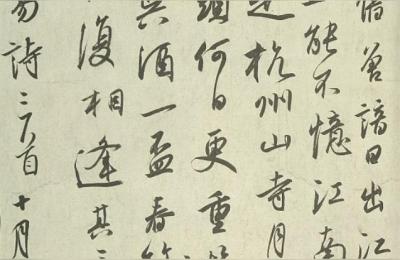 舊曾諳日出江
能不憶江南
是杭州山寺月
頭何日更重
吳酒一盃春竹
復相逢其三
易詩三首十月